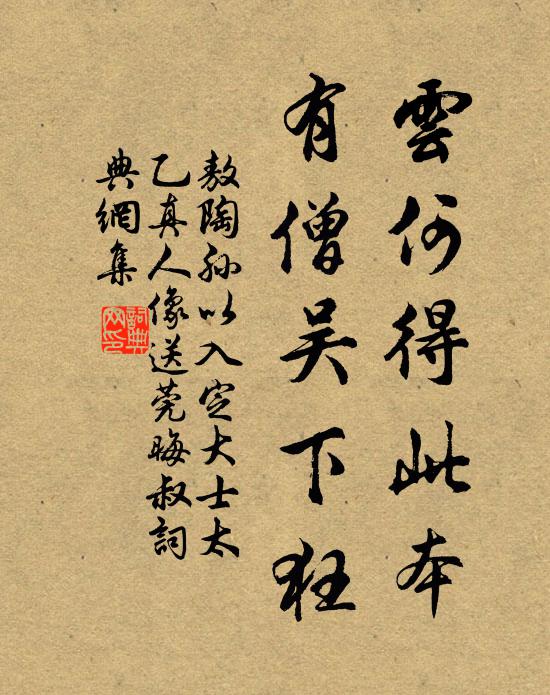 雲何得此本
有僧吴下狂
敖陶孙以入定大士太
乙真人像送莞晦叔詞
典網集
詞典網印